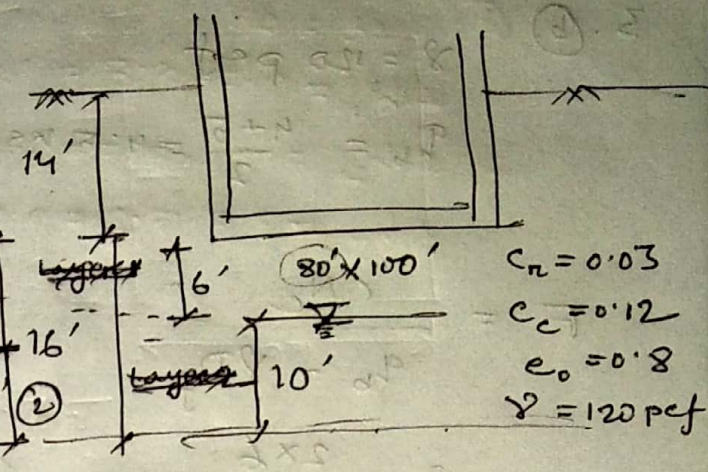 14'
6'
80' × 100'
16'
10'
②
Cr = 0.03
Cc = 0.12
e₀ = 0.8
γ = 120 pcf